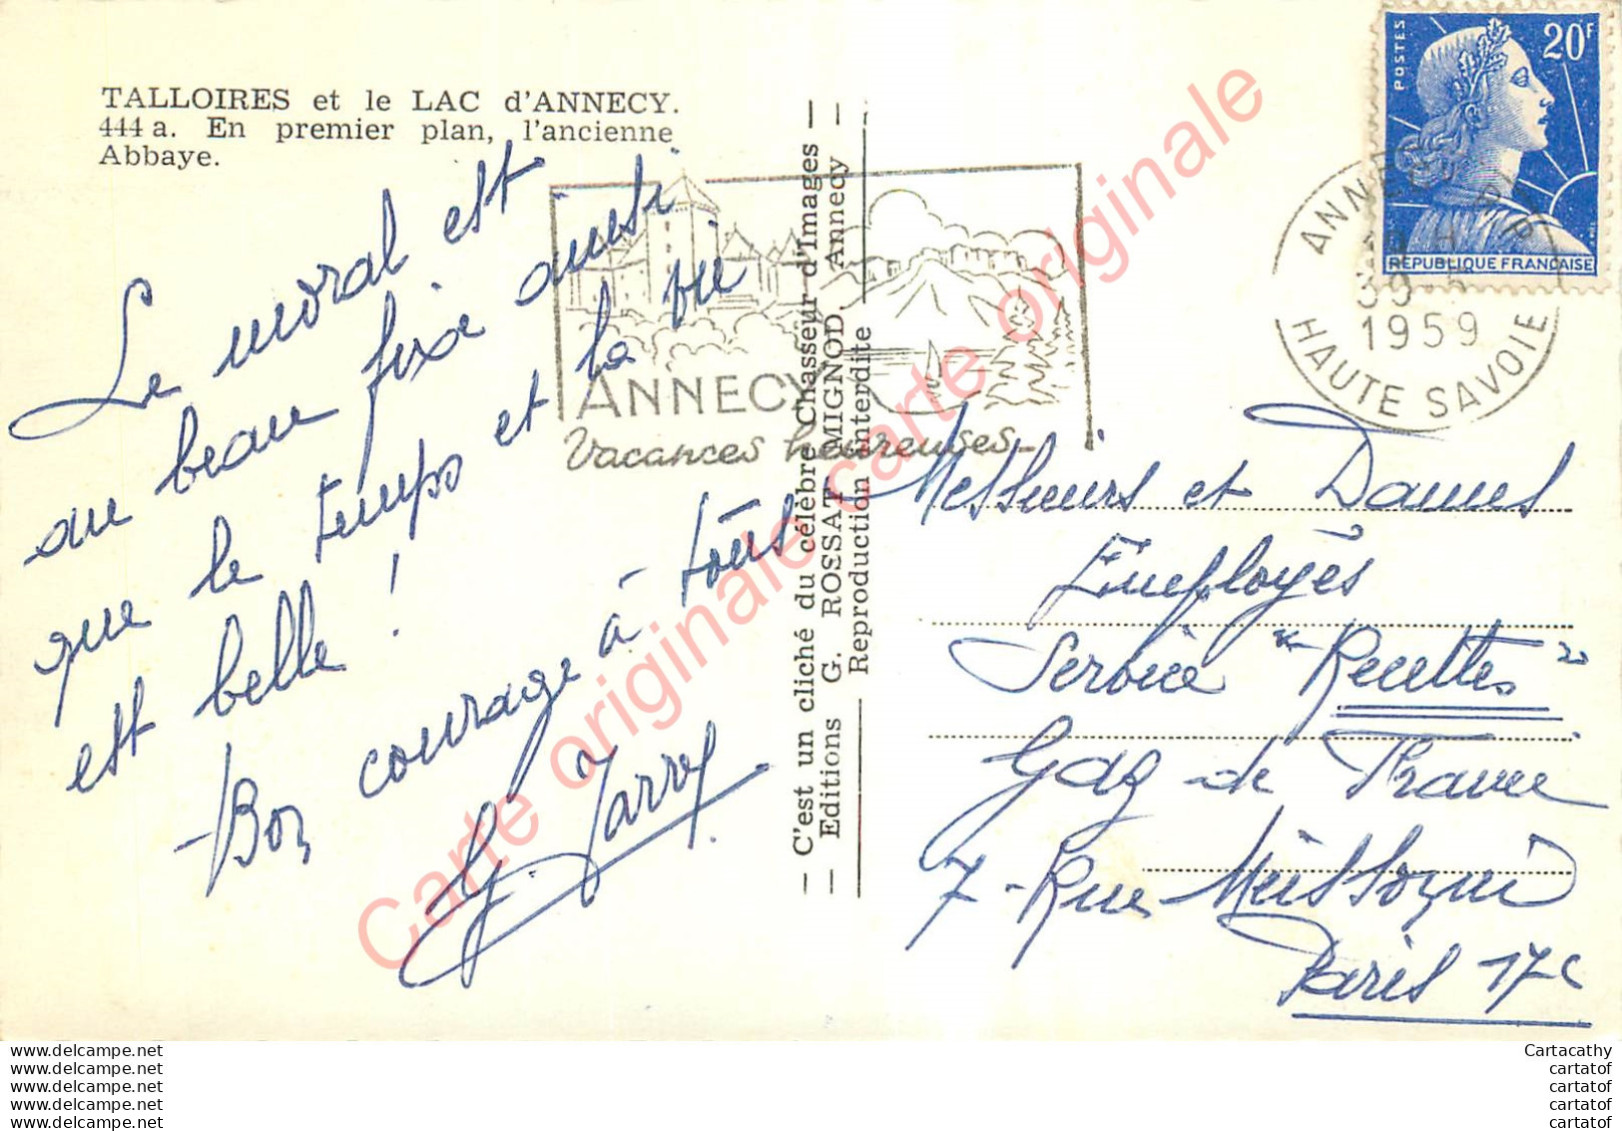 TALLOIRES et le LAC d'ANNECY.
444 a. En premier plan, l'ancienne
Abbaye.
Le moral est
au beau fixe ainsi
que le temps et la vie
est belle !
Bon courage à tous
G. Jarry
— C'est un cliché du célèbre Chasseur d'Images —
— Editions G. ROSSAT - MIGNOD, Annecy —
Reproduction interdite
ANNECY
Vacances heureuses
POSTES
20F
REPUBLIQUE FRANÇAISE
ANNECY
1959
HAUTE SAVOIE
Messieurs et Dames
Employés
Service "Recettes"
Gaz de France
7 - Rue Meissonier
Paris 17e
Carte originale carte originale
www.delcampe.net
www.delcampe.net
www.delcampe.net
www.delcampe.net
www.delcampe.net
Cartacathy
cartatof
cartatof
cartatof
cartatof